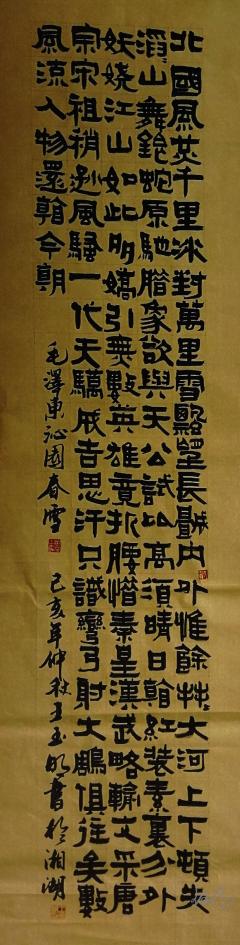 北國風光千里冰封萬里雪飄望長城内外惟餘莽莽大河上下頓失
滔滔山舞銀蛇原馳臘象欲與天公試比高須晴日看紅裝素裹分外
妖嬈江山如此多嬌引無數英雄竟折腰惜秦皇漢武略輸文采唐
宗宋祖稍遜風騷一代天驕成吉思汗只識彎弓射大鵰俱往矣數
風流人物還看今朝
毛澤東沁園春雪 己亥年仲秋王玉明書於湘湖